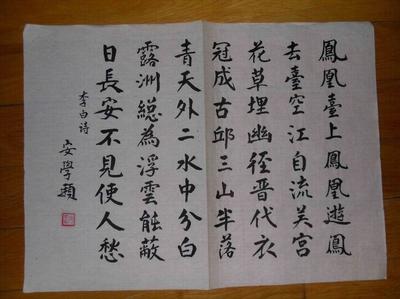 鳳凰臺上鳳凰遊鳳
去臺空江自流吴宮
花草埋幽徑晋代衣
冠成古邱三山半落
青天外二水中分白
露洲総為浮雲能蔽
日長安不見使人愁
李白诗
安學